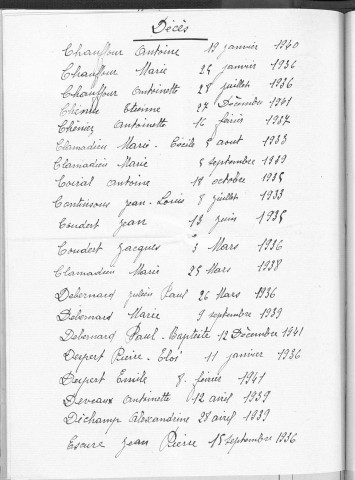 Décès
Chauffour Antoine 19 janvier 1940
Chauffour Marie 24 janvier 1936
Chauffour Antoinette 28 juillet 1936
Etienne 27 Décembre 1941
Antoinette 16 février 1937
Clamadieu Marie-Cécile 5 aout 1933
Clamadieu Marie 5 septembre 1939
Coiral antoine 18 octobre 1935
Contensous Jean-Louis 8 juillet 1933
Coudert Jean 13 juin 1935
Coudert Jacques 3 Mars 1936
Clamadieu Marie 25 Mars 1938
Debernard Julien Paul 26 Mars 1936
Débernard Marie 9 septembre 1939
Debernard Paul-Baptiste 12 Décembre 1941
Despert Pierre-Eloi 11 janvier 1936
Despert Emile 8 février 1941
Deveaux Antoinette 12 avril 1939
Déchamp Alexandrine 28 avril 1939
Escure Jean Pierre 15 septembre 1936